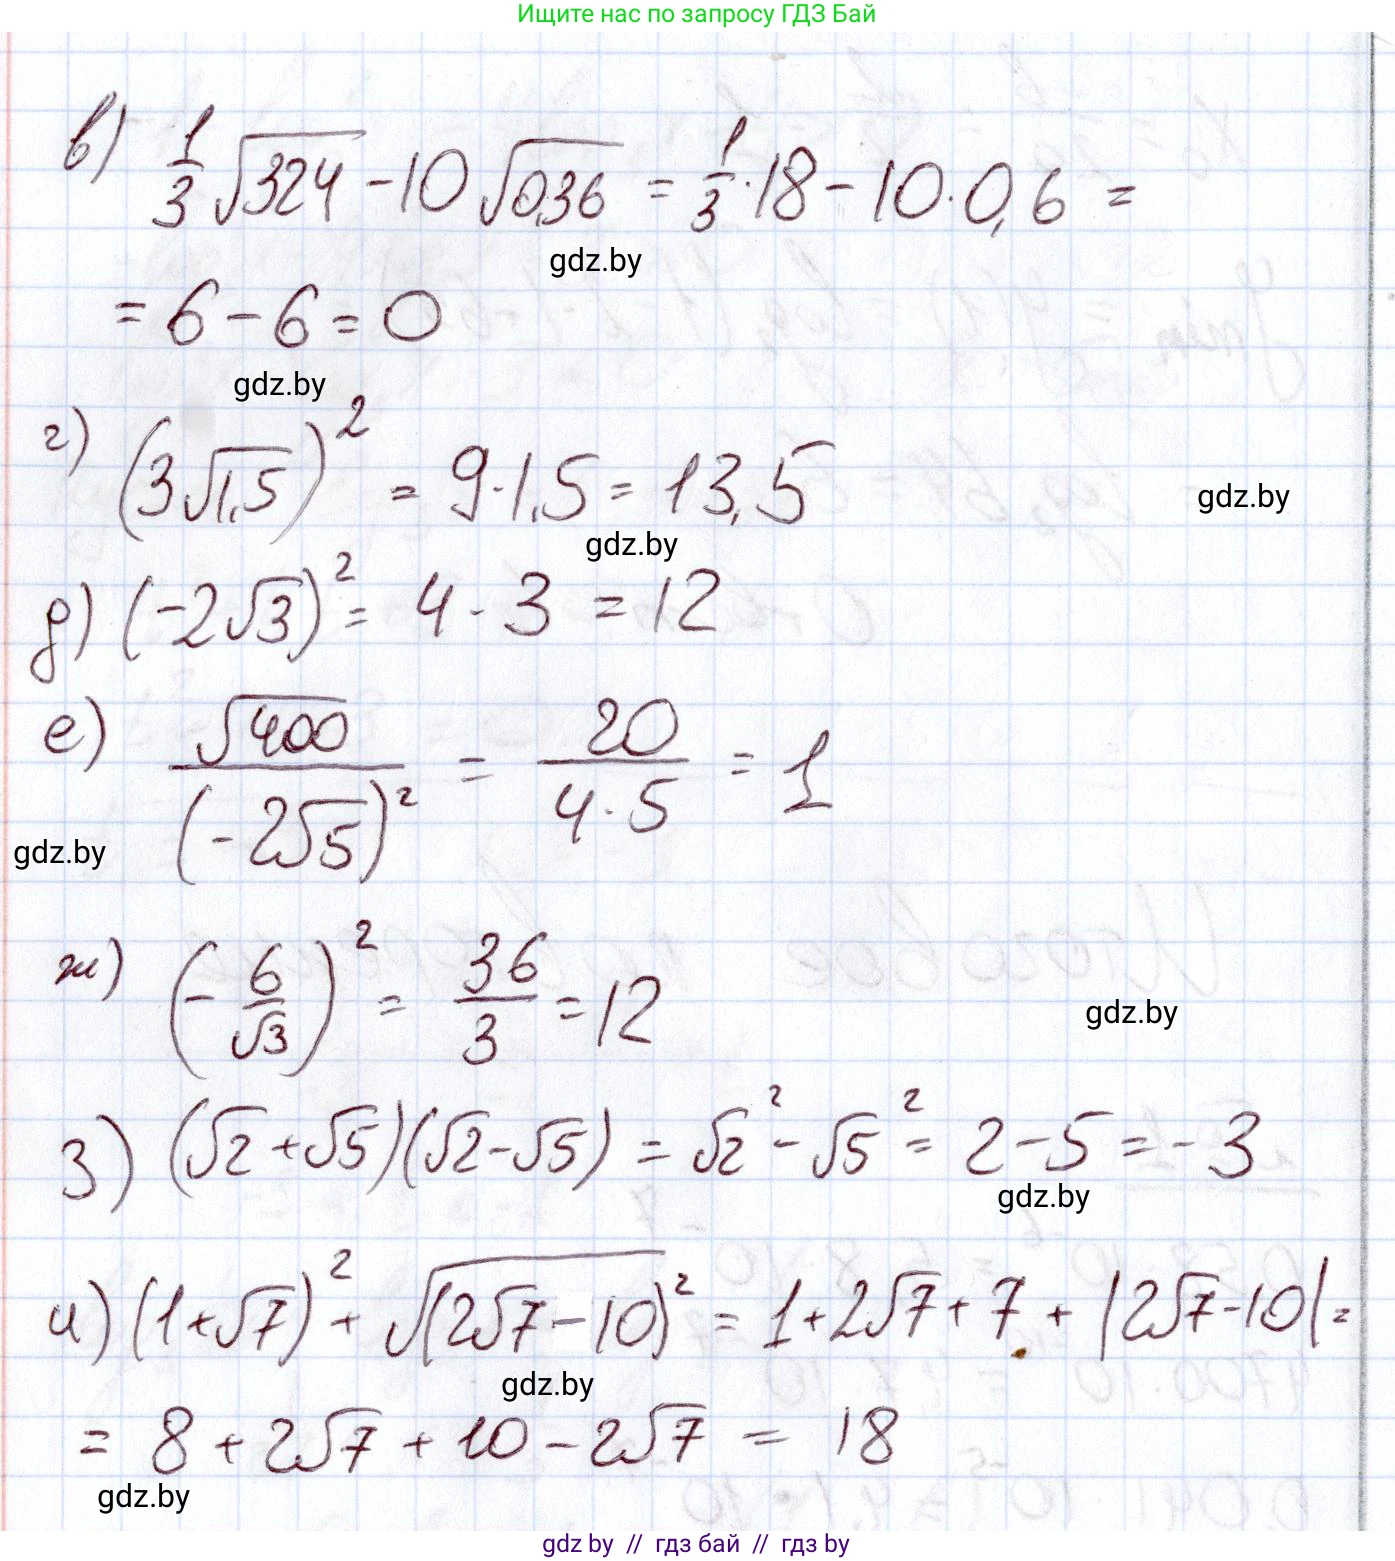 Ищите нас по запросу ГДЗ Бай
в) 1/3 √324 - 10 √0,36 = 1/3 · 18 - 10 · 0,6 =
gdz.by
= 6 - 6 = 0
gdz.by
г) (3√1,5)² = 9 · 1,5 = 13,5
gdz.by
gdz.by
д) (-2√3)² = 4 · 3 = 12
е) √400 / (-2√5)² = 20 / (4 · 5) = 1
gdz.by
ж) (- 6/√3)² = 36/3 = 12
gdz.by
з) (√2 + √5)(√2 - √5) = √2² - √5² = 2 - 5 = -3
gdz.by
и) (1 + √7)² + √(2√7 - 10)² = 1 + 2√7 + 7 + |2√7 - 10| =
gdz.by
= 8 + 2√7 + 10 - 2√7 = 18
gdz.by
gdz.by // гдз бай // гдз by